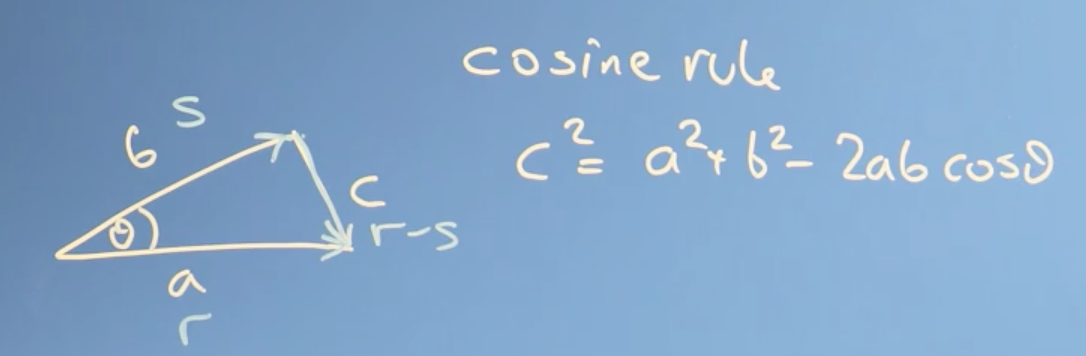 cosine rule
c² = a² + b² - 2ab cosθ
s
b
c
r-s
θ
a
r